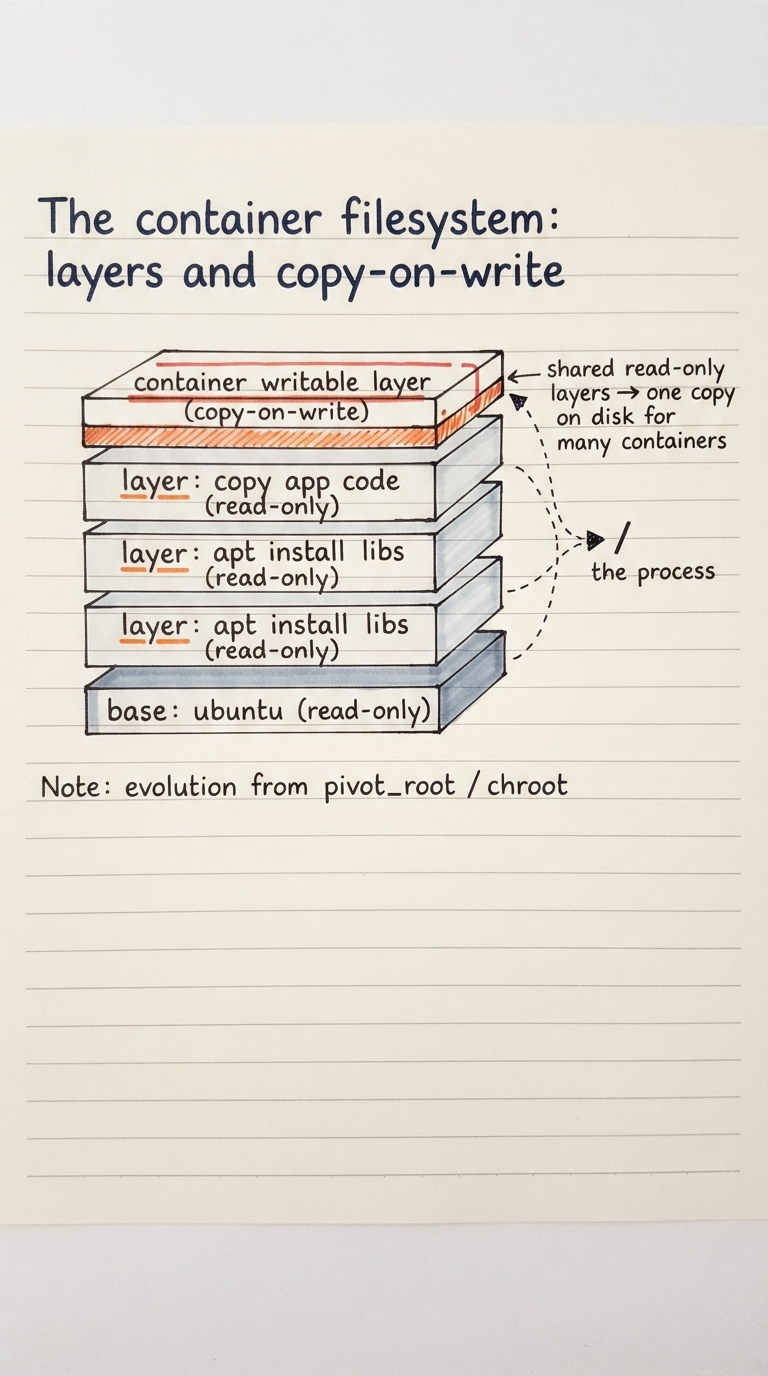 The container filesystem:
layers and copy-on-write
container writable layer
(copy-on-write)
shared read-only
layers → one copy
on disk for
many containers
layer: copy app code
(read-only)
layer: apt install libs
(read-only)
/
the process
layer: apt install libs
(read-only)
base: ubuntu (read-only)
Note: evolution from pivot_root / chroot